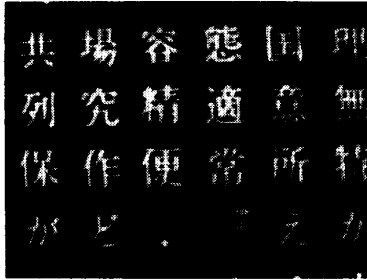 共場容態国理
列究精適意無
保作便常所指
がど
えか